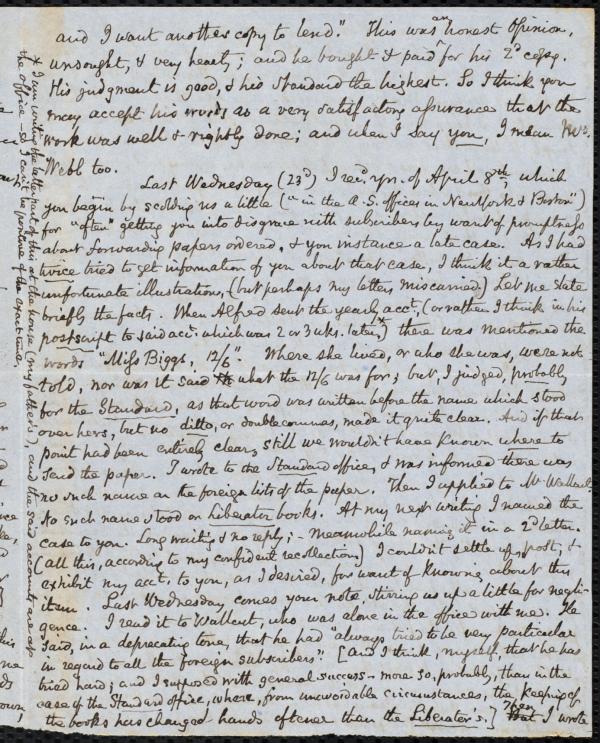 and I want another copy to lend." This was an honest Opinion,
unsought, & very hearty; and he bought & paid for his 2d copy.
His judgment is good, & his standard the highest. So I think you
may accept his words as a very satisfactory assurance that the
work was well & rightly done; and when I say you, I mean Mrs.
Webb too.
Last Wednesday (23d) I recd yrs. of April 8th, which
you begin by scolding us a little ("in the A.S. offices in New York & Boston")
for "often" getting you into disgrace with subscribers by want of promptness
about forwarding papers ordered, & you instance a late case. As I had
twice tried to get information of you about that case, I think it a rather
unfortunate illustration, (but perhaps my letters miscarried.) Let me state
briefly the facts. When Alfred sent the yearly acct, (or rather I think in his
postscript to said acct. which was 2 or 3 wks. later,) there was mentioned the
words "Miss Biggs, 12/6". Where she lived, or who she was, we were not
told, nor was it said what the 12/6 was for; but, I judged, probably
for the Standard, as that word was written before the name which stood
over hers, but no ditto, or double commas, made it quite clear. And if that
point had been entirely clear, still we wouldn't have known where to
send the paper. I wrote to the Standard office, & was informed there was
no such name on the foreign lists of the paper. Then I applied to Mr Wallcut.
No such name stood on Liberator books. At my next writing I named the
case to you. Long waiting & no reply; - meanwhile naming it in a 2d letter.
(all this, according to my confident recollection) I couldn't settle up, post, &
exhibit my acct. to you, as I desired, for want of knowing about this
item. Last Wednesday comes your note, stirring us up a little for negli-
gence. I read it to Wallcut, who was alone in the office with me. He
said, in a deprecating tone, that he had "always tried to be very particular
in regard to all the foreign subscribers". [And I think, myself, that he has
tried hard; and I supposed with general success - more so, probably, than in the
case of the Standard office, where, from unavoidable circumstances, the keeping of
the books has changed hands oftener than the Liberator's.] Then I wrote
& I am writing the latter part of this at the house (my father's), and the said accounts are at
the office - so I can't be positive of the exact time.